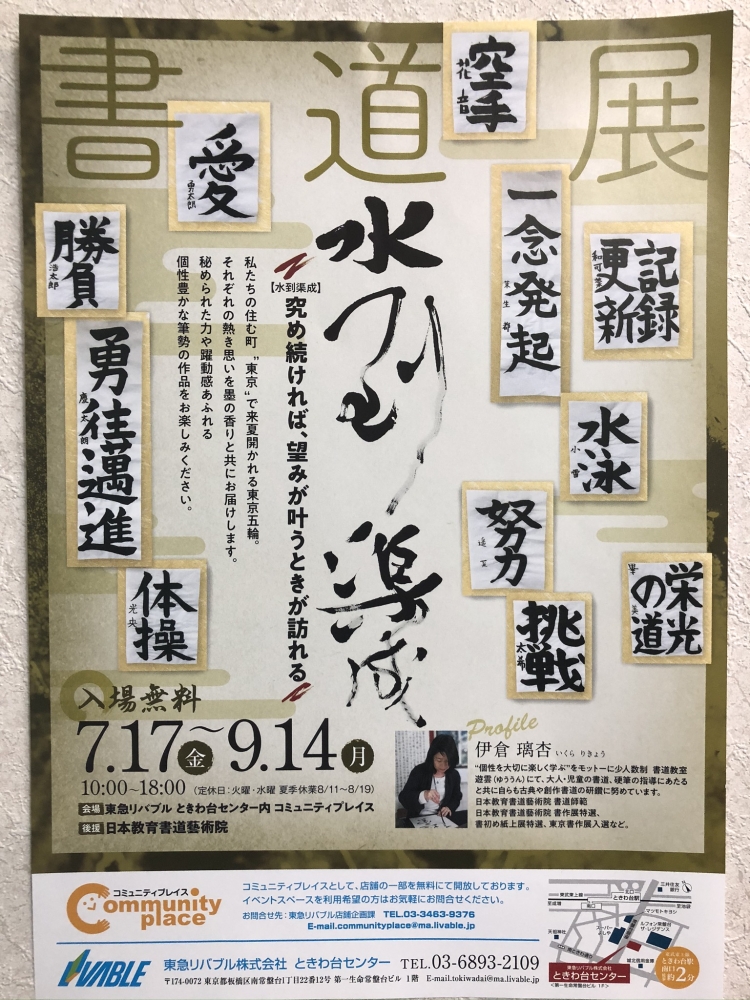 書道展
空手
花音
愛
勇太朗
一念発起
記録
更新
勝負
浩太郎
勇往邁進
慶太朗
水泳
努力
遥夏
栄光
の道
挑戦
太希
体操
光央
水到渠成
【水到渠成】
究め続ければ、望みが叶うときが訪れる
私たちの住む町〝東京〟で来夏開かれる東京五輪。
それぞれの熱き思いを墨の香りと共にお届けします。
秘められた力や躍動感あふれる
個性豊かな筆勢の作品をお楽しみください。
入場無料
7.17金〜9.14月
10:00~18:00（定休日：火曜・水曜 夏季休業8/11〜8/19）
会場 東急リバブル ときわ台センター内 コミュニティプレイス
後援 日本教育書道藝術院
Profile
伊倉 璃杏 いくら りきょう
“個性を大切に楽しく学ぶ”をモットーに少人数制 書道教室
遊雲（ゆううん）にて、大人・児童の書道、硬筆の指導にあたる
と共に自らも古典や創作書道の研鑽に努めています。
日本教育書道藝術院 書道師範
日本教育書道藝術院 書作展特選、
書初め紙上展特選、東京書作展入選など。
コミュニティプレイス
Community
place
コミュニティプレイスとして、店舗の一部を無料にて開放しております。
イベントスペースを利用希望の方はお気軽にお問合せください。
お問合せ先：東急リバブル店舗企画課 TEL.03-3463-9376
E-mail.communityplace@ma.livable.jp
LIVABLE
東急リバブル株式会社 ときわ台センター TEL.03-6893-2109
〒174-0072 東京都板橋区南常盤台1丁目22番12号 第一生命常盤台ビル 1階 E-mail.tokiwadai@ma.livable.jp
三井住友
銀行
東武東上線
北口
ときわ台駅
至成増
南口
至池袋
マツモトキヨシ
天祖神社
スーパー
よしや
ルフォン常盤台
ザ・レジデンス
城北信用金庫
東急リバブル株式会社
ときわ台センター
<第一生命常盤台ビル 1F>
東武東上線
ときわ台駅
南口
約2分